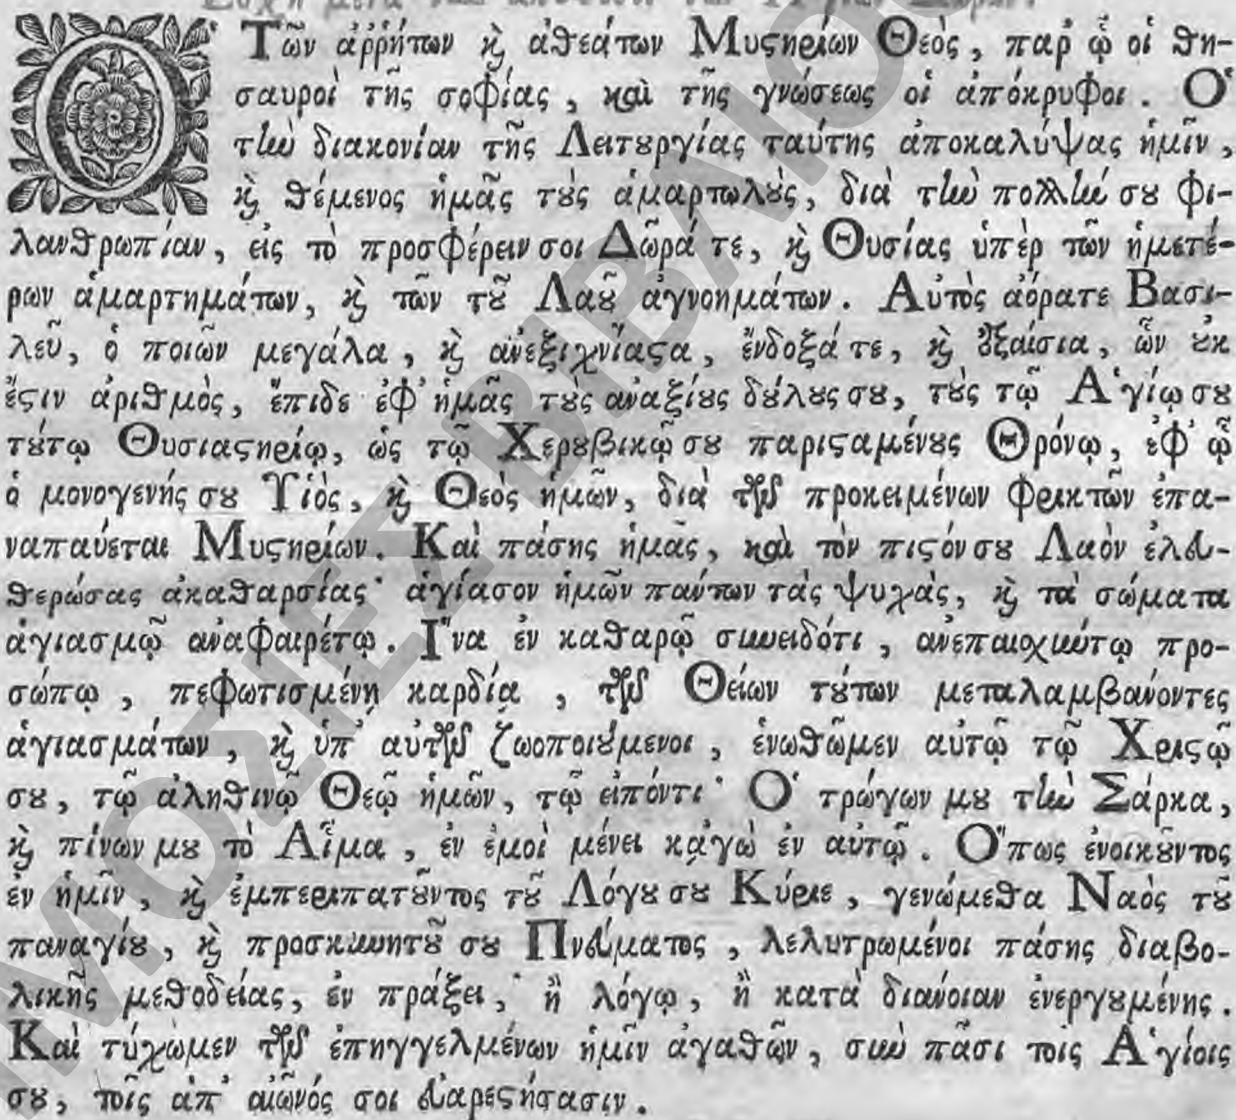 Εὐχὴ μετὰ τὴν ἀπόθεσιν τῶν Ἁγίων Δώρων.
Ὁ Τῶν ἀῤῥήτων καὶ ἀθεάτων Μυστηρίων Θεὸς, παρ' ᾧ οἱ θη-
σαυροὶ τῆς σοφίας, καὶ τῆς γνώσεως οἱ ἀπόκρυφοι. Ὁ
τὴν διακονίαν τῆς Λειτουργίας ταύτης ἀποκαλύψας ἡμῖν,
καὶ θέμενος ἡμᾶς τοὺς ἁμαρτωλοὺς, διὰ τὴν πολλήν σου φι-
λανθρωπίαν, εἰς τὸ προσφέρειν σοι Δῶρά τε, καὶ Θυσίας ὑπὲρ τῶν ἡμετέ-
ρων ἁμαρτημάτων, καὶ τῶν τοῦ Λαοῦ ἀγνοημάτων. Αὐτὸς ἀόρατε Βασι-
λεῦ, ὁ ποιῶν μεγάλα, καὶ ἀνεξιχνίαστα, ἔνδοξά τε, καὶ ἐξαίσια, ὧν οὐκ
ἔστιν ἀριθμὸς, ἔπιδε ἐφ' ἡμᾶς τοὺς ἀναξίους δούλους σου, τοὺς τῷ Ἁγίῳ σου
τούτῳ Θυσιαστηρίῳ, ὡς τῷ Χερουβικῷ σου παρισταμένους Θρόνῳ, ἐφ' ᾧ
ὁ μονογενής σου Υἱὸς, καὶ Θεὸς ἡμῶν, διὰ τῶν προκειμένων φρικτῶν ἐπα-
ναπαύεται Μυστηρίων. Καὶ πάσης ἡμᾶς, καὶ τὸν πιστόν σου Λαὸν ἐλευ-
θερώσας ἀκαθαρσίας· ἁγίασον ἡμῶν πάντων τὰς ψυχὰς, καὶ τὰ σώματα
ἁγιασμῷ ἀναφαιρέτῳ. Ἵνα ἐν καθαρῷ συνειδότι, ἀνεπαισχύντῳ προ-
σώπῳ, πεφωτισμένῃ καρδίᾳ, τῶν Θείων τούτων μεταλαμβάνοντες
ἁγιασμάτων, καὶ ὑπ' αὐτῶν ζωοποιούμενοι, ἑνωθῶμεν αὐτῷ τῷ Χριστῷ
σου, τῷ ἀληθινῷ Θεῷ ἡμῶν, τῷ εἰπόντι· Ὁ τρώγων μου τὴν Σάρκα,
καὶ πίνων μου τὸ Αἷμα, ἐν ἐμοὶ μένει κᾀγὼ ἐν αὐτῷ. Ὅπως ἐνοικοῦντος
ἐν ἡμῖν, καὶ ἐμπεριπατοῦντος τοῦ Λόγου σου Κύριε, γενώμεθα Ναὸς τοῦ
παναγίου, καὶ προσκυνητοῦ σου Πνεύματος, λελυτρωμένοι πάσης διαβο-
λικῆς μεθοδείας, ἐν πράξει, ἢ λόγῳ, ἢ κατὰ διάνοιαν ἐνεργουμένης.
Καὶ τύχωμεν τῶν ἐπηγγελμένων ἡμῖν ἀγαθῶν, σὺν πᾶσι τοῖς Ἁγίοις
σου, τοῖς ἀπ' αἰῶνός σοι εὐαρεστήσασιν.